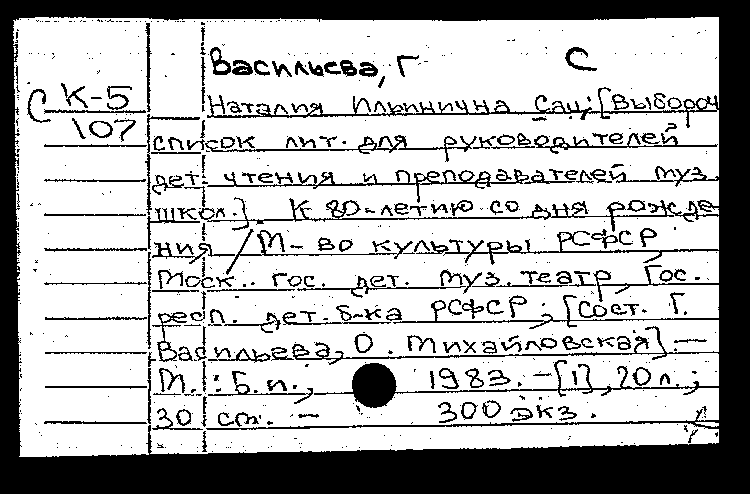 Васильева, Г С
С К-5
107
Наталия Ильинична Сац; [Выбороч
список лит. для руководителей
дет. чтения и преподавателей муз.
школ.]. К 80-летию со дня рожде-
ния / М-во культуры РСФСР,
Моск. гос. дет. муз. театр, Гос.
респ. дет. б-ка РСФСР; [Сост. Г.
Васильева, О. Михайловская]. —
М. : Б. и., 1983. - [1], 20 л.;
30 см. — 300 экз.